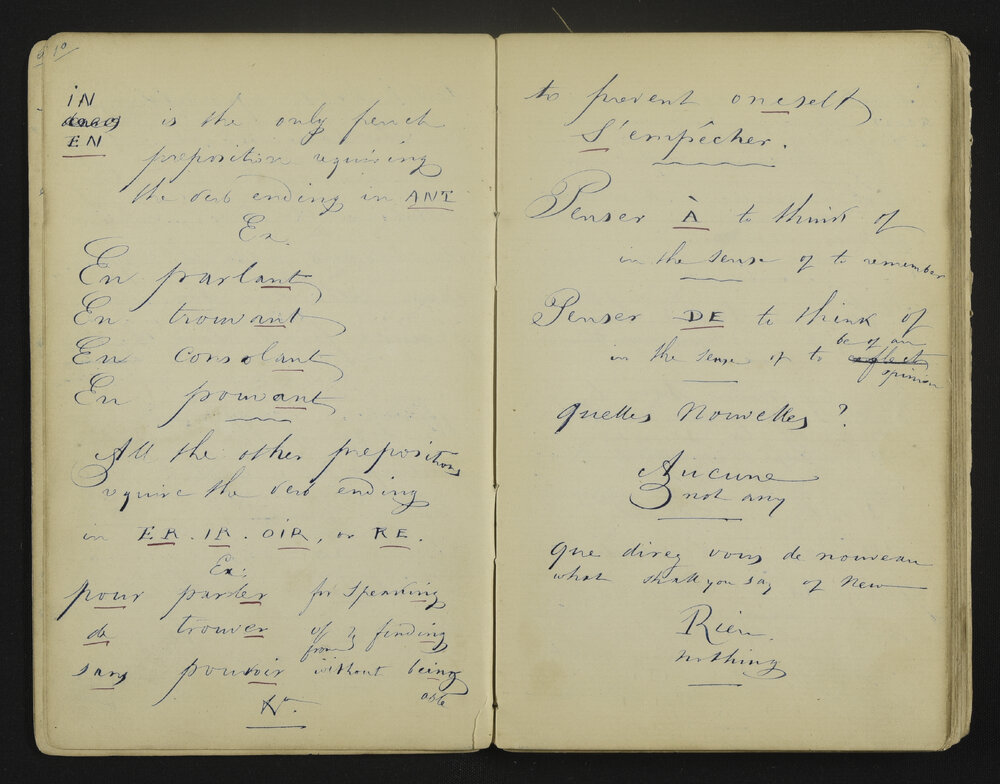 10
IN
EN is the only french
preposition requiring
the verb ending in ANT
Ex.
En parlant
En trouvant
En consolant
En pouvant
All the other prepositions
require the verb ending
in ER. IR. OIR, or RE.
Ex:
pour parler for speaking
de trouver of or finding
from
sans pouvoir without being
able
to prevent oneself
S'empêcher.
Penser À to think of
in the sense of to remember
Penser DE to think of
in the sense of to be of an
opinion
quelles Nouvelles ?
Aucune
not any
que direz vous de nouveau
what shall you say of New
Rien.
nothing